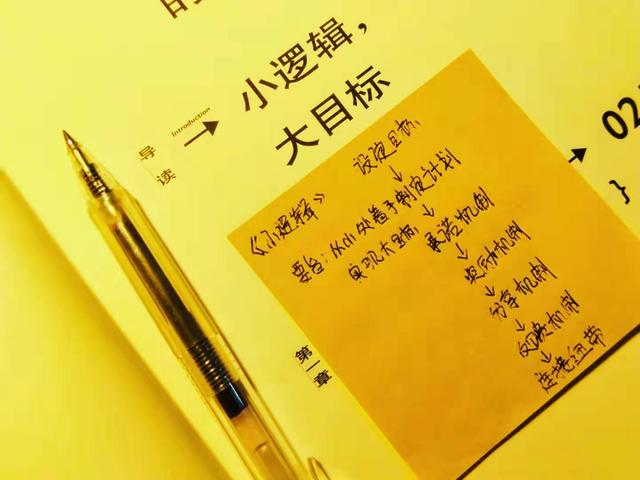 的
小逻辑，
大目标
Introduction →
导读
第一章
02
→
}
设定目标
↓
《小逻辑》
要旨：从小处着手制定计划
实现大目标 ↓
承诺机制
↓
机制
↓
分享机制
↓
反馈机制
↓
连接纽带